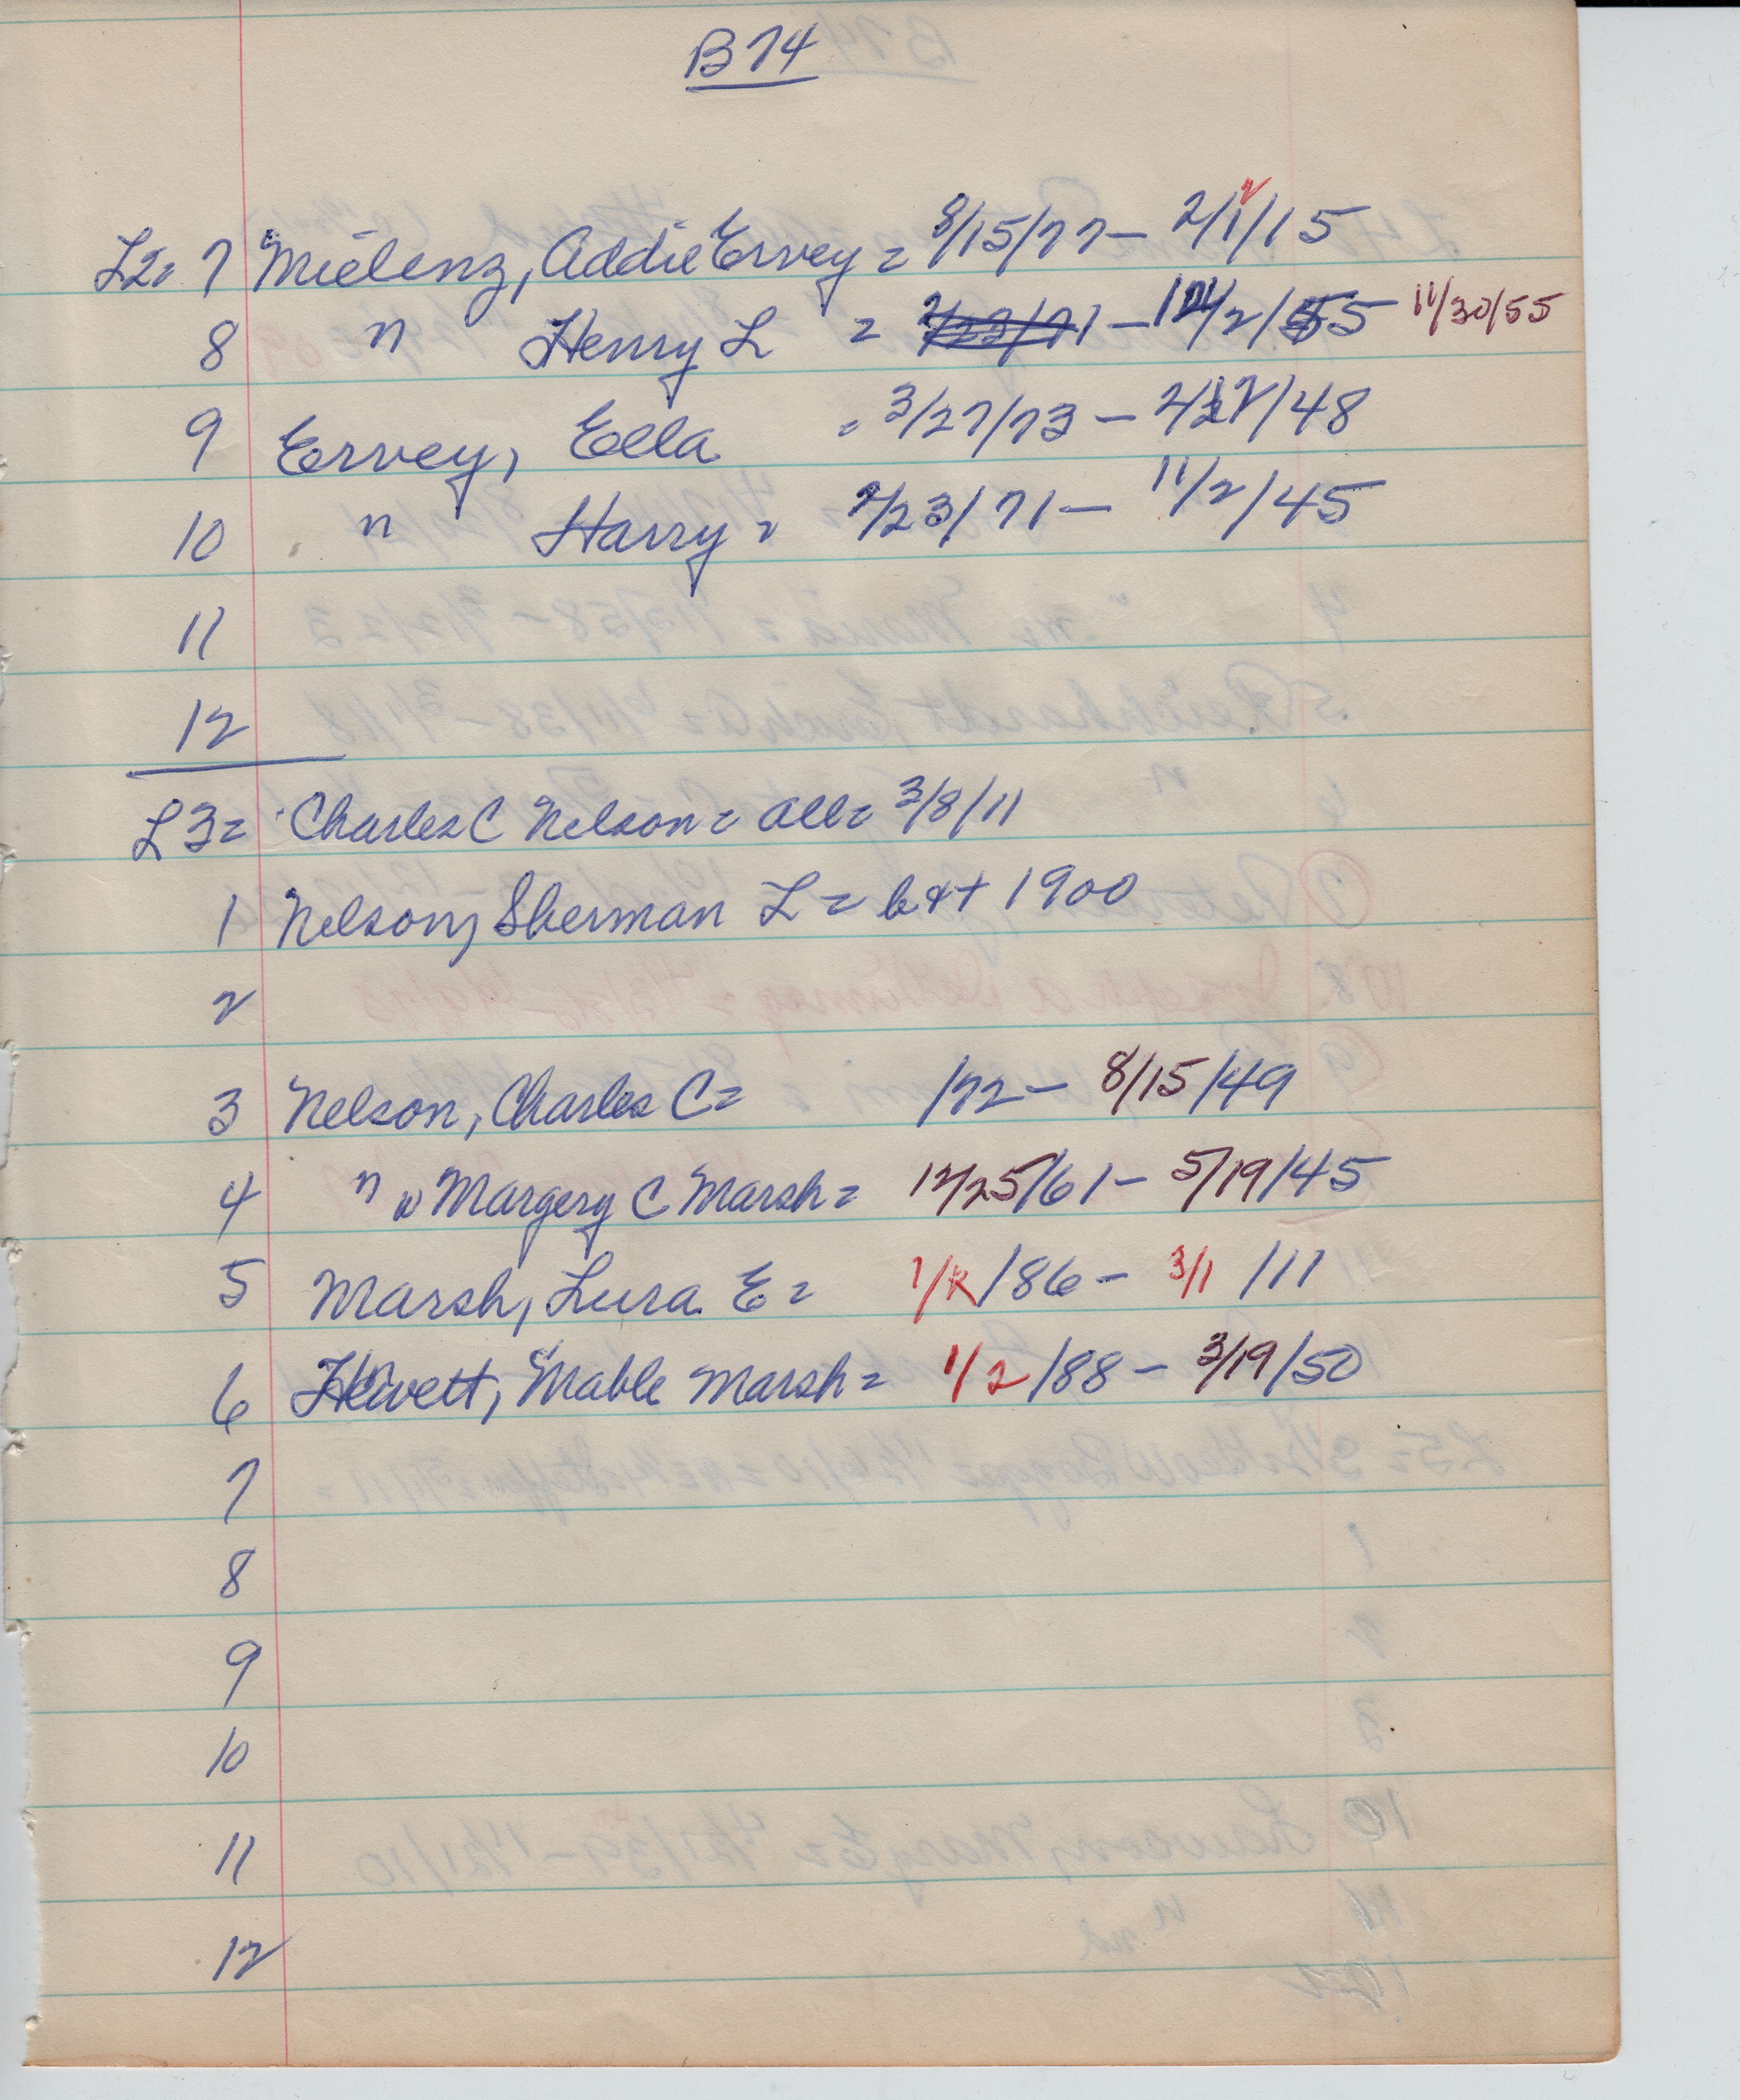 B74
L2= 7 Mielenz, Addie Ervey = 8/15/77 - 2/1/15
8 " Henry L = 2/23/71 - 12/2/55 11/30/55
9 Ervey, Ella = 3/27/73 - 2/27/48
10 " Harry = 2/23/71 - 11/2/45
11
12
L3= Charles C Nelson = all = 3/8/11
1 Nelson, Sherman L = b&+ 1900
2
3 Nelson, Charles C = /72 - 8/15/49
4 " w Margery C Marsh = 12/25/61 - 5/19/45
5 Marsh, Lura E = /86 - 3/1/11
6 Hewett, Mable Marsh = 1/2/88 - 3/19/50
7
8
9
10
11
12